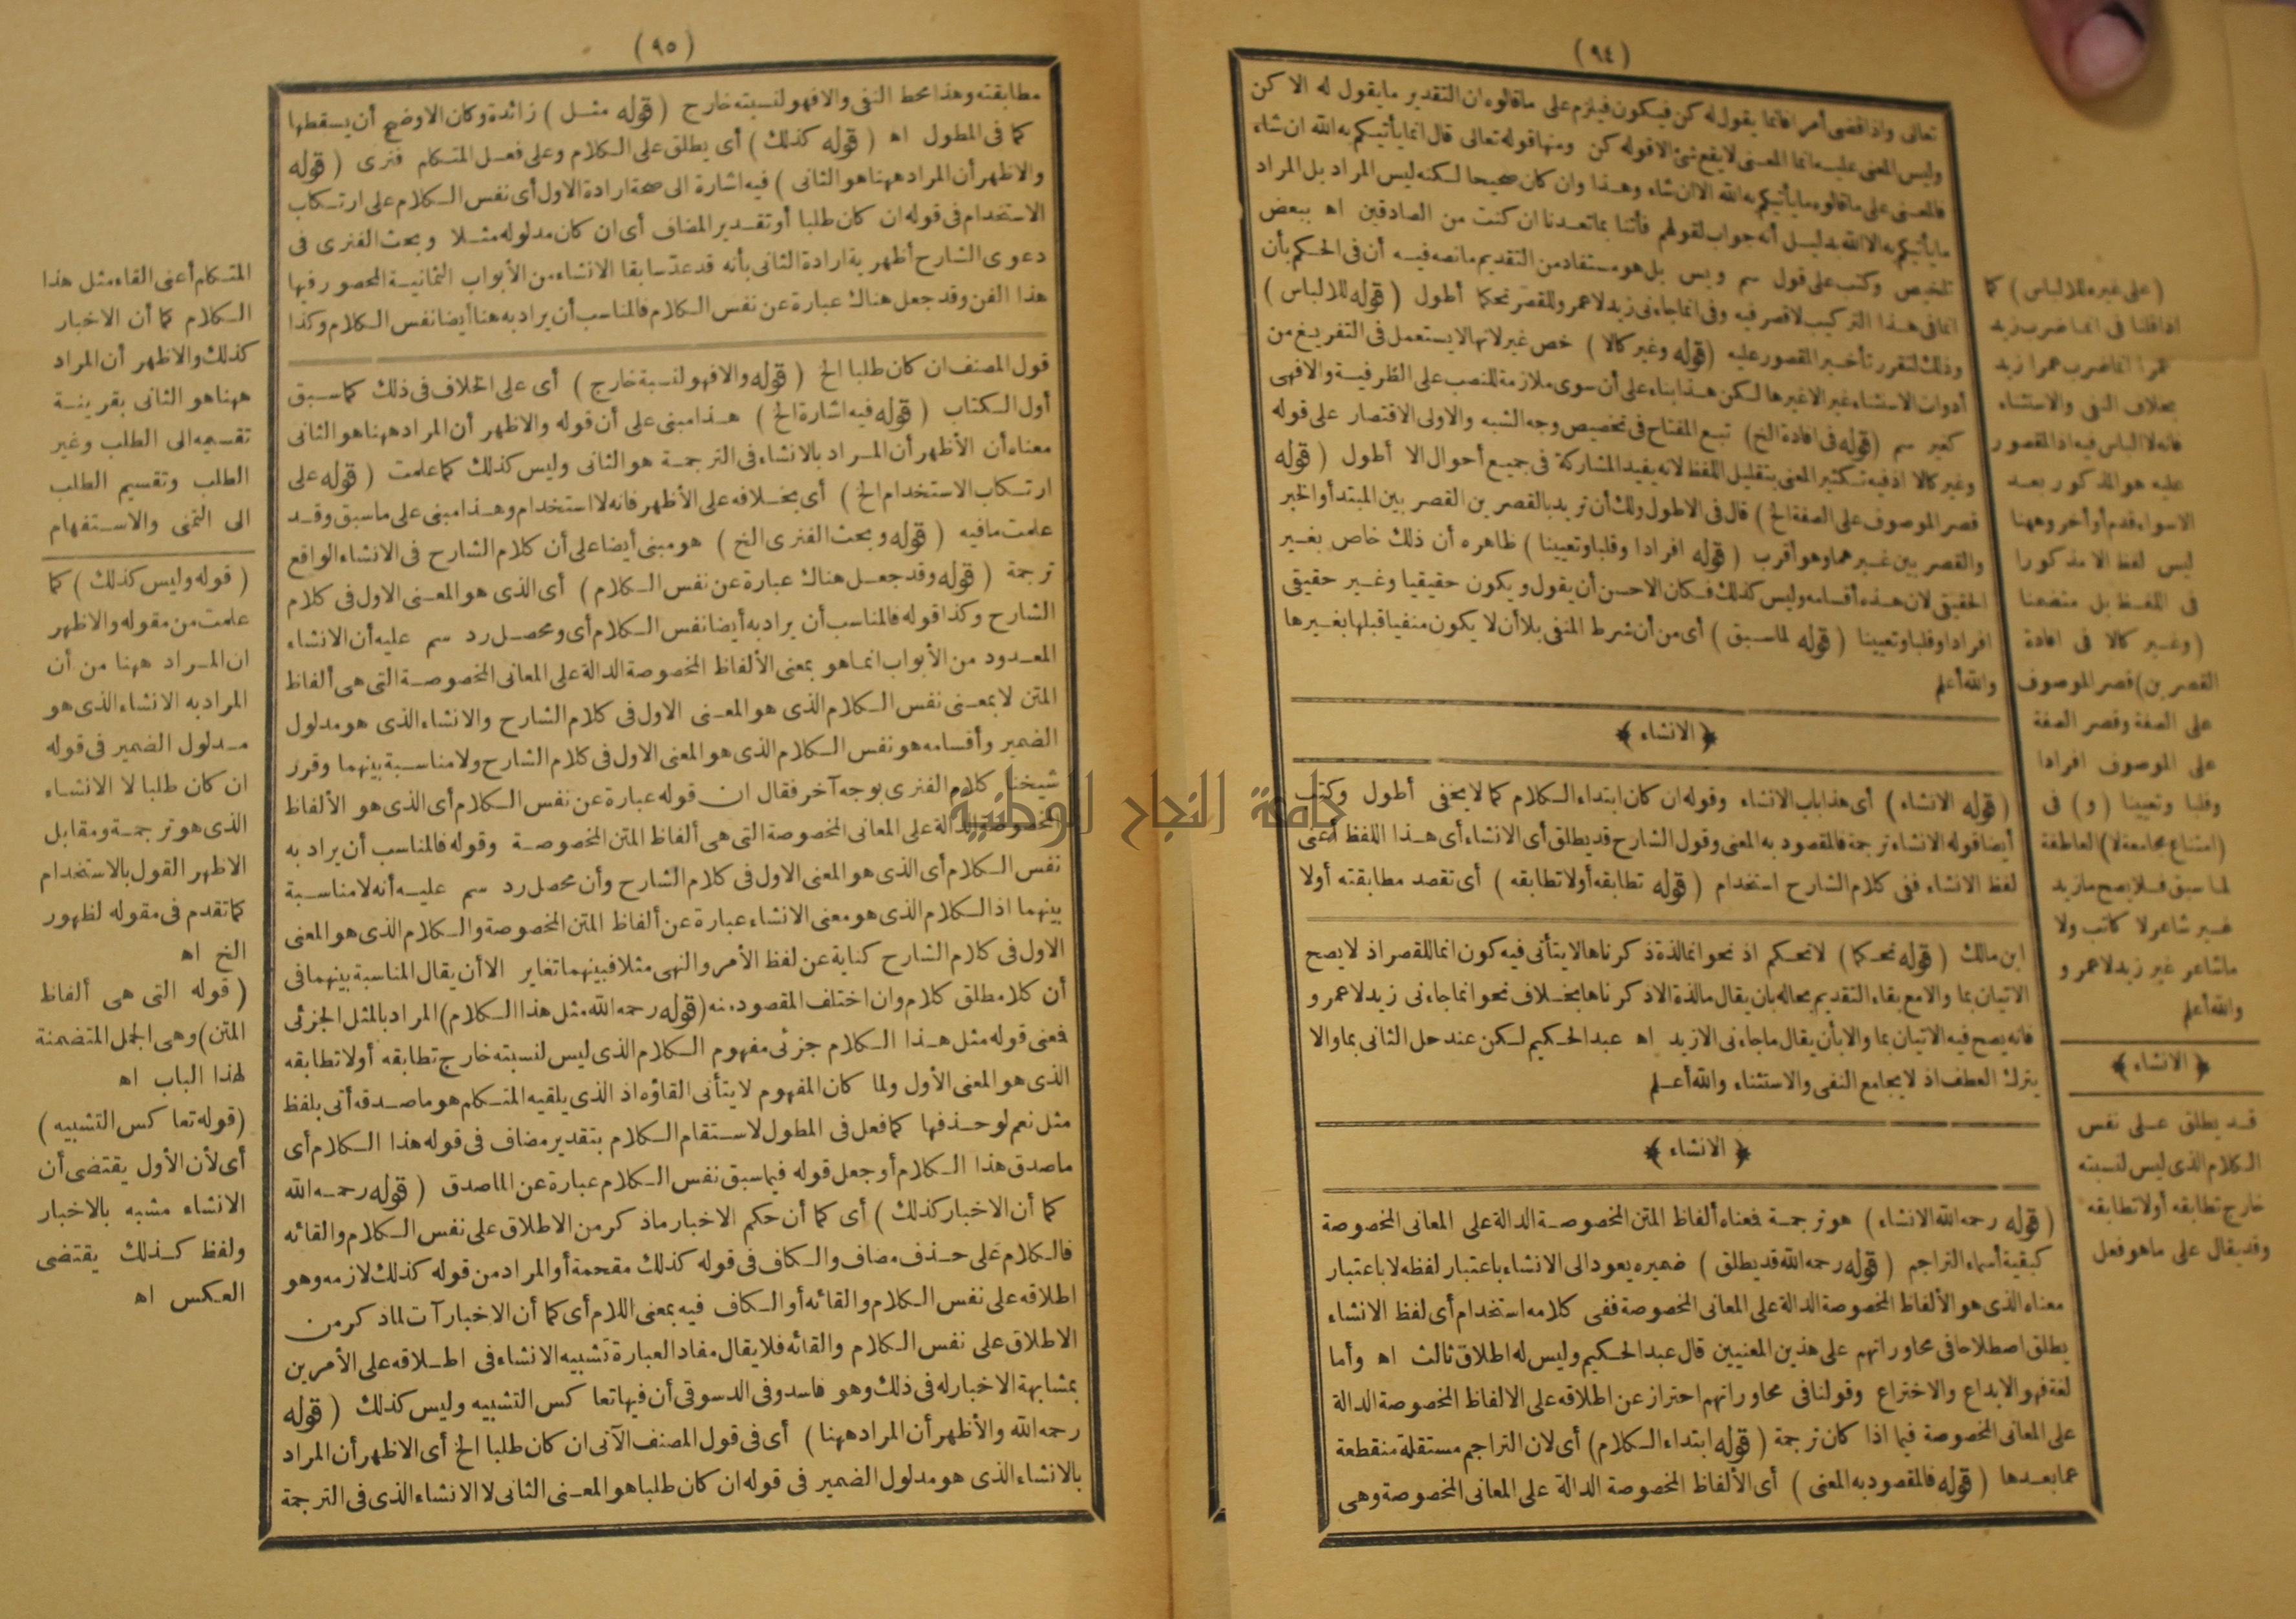 (٩٤)
تعالى واذا قضى أمرا فانما يقول له كن فيكون فيلزم على ماقالوه ان التقدير ما يقول له الا كن
وليس المعنى عليه انما المعنى لا يقع شئ الا قوله كن ومنها قوله تعالى قال انما يأتيكم به الله ان شاء
فالمعنى على ماقالوه ما يأتيكم به الله الا ان شاء وهذا وان كان صحيحا لكنه ليس المراد بل المراد
ما يأتيكم به الا الله بدليل أنه جواب لقولهم فأتنا بما تعدنا ان كنت من الصادقين اه ببعض
تلخيص وكتب على قول سم وبس بل هو مستفاد من التقديم مانصه فيه أن فى الحكم بأن
انما فى هذا التركيب لا قصر فيه وفى انما جاءنى زيد لا عمرو للقصر تحكما أطول (قوله للالباس)
وذلك لتقرر تأخير المقصور عليه (قوله وغير كالا) خص غير لانها لا يستعمل فى التفريغ من
أدوات الاستثناء غير الا غيرها لكن هذا بناء على أن سوى ملازمة للنصب على الظرفية والا فهى
كغير سم (قوله فى افادة الخ) تبع المفتاح فى تخصيص وجه الشبه والاولى الاقتصار على قوله
وغير كالا اذ فيه تكثير المعنى بتقليل اللفظ لانه يفيد المشاركة فى جميع أحوال الا أطول (قوله
قصر الموصوف على الصفة الخ) قال فى الاطول ولك أن تريد بالقصرين القصر بين المبتدأ والخبر
والقصر بين غيرهما وهو أقرب (قوله افرادا وقلبا وتعيينا) ظاهره أن ذلك خاص بغير
الحقيقى لان هذه أقسامه وليس كذلك فكان الاحسن أن يقول ويكون حقيقيا وغير حقيقى
افرادا وقلبا وتعيينا (قوله لما سبق) أى من أن شرط المنفى بلا أن لا يكون منفيا قبلها بغيرها
والله أعلم
﴿الانشاء﴾
(قوله الانشاء) أى هذا باب الانشاء وقوله ان كان ابتداء الكلام كما لا يخفى أطول وكتب
أيضا قوله الانشاء ترجمة فالمقصود به المعنى وقول الشارح قد يطلق أى الانشاء أى هذا اللفظ أعنى
لفظ الانشاء ففى كلام الشارح استخدام (قوله تطابقه أولا تطابقه) أى تقصد مطابقته أولا
ابن مالك (قوله تحكما) لا تحكم اذ نحو انما لذة ذكرناها لا يتأتى فيه كون انما للقصر اذ لا يصح
الاتيان بما والا مع بقاء التقديم بحاله بان يقال ما لذة الا ذكرناها بخلاف نحو انما جاءنى زيد لا عمرو
فانه يصح فيه الاتيان بما والا بأن يقال ما جاءنى الا زيد اه عبد الحكيم لكن عند حل الثانى بما والا
يترك العطف اذ لا يجامع النفى والاستثناء والله أعلم
﴿الانشاء﴾
(قوله رحمه الله الانشاء) هو ترجمة فعناه ألفاظ المتن المخصوصة الدالة على المعانى المخصوصة
كبقية أسماء التراجم (قوله رحمه الله قد يطلق) ضميره يعود الى الانشاء باعتبار لفظه لا باعتبار
معناه الذى هو الألفاظ المخصوصة الدالة على المعانى المخصوصة ففى كلامه استخدام أى لفظ الانشاء
يطلق اصطلاحا فى محاوراتهم على هذين المعنيين قال عبد الحكيم وليس له اطلاق ثالث اه وأما
لغة فهو الابداع والاختراع وقولنا فى محاوراتهم احتراز عن اطلاقه على الالفاظ المخصوصة الدالة
على المعانى المخصوصة فيما اذا كان ترجمة (قوله ابتداء الكلام) أى لان التراجم مستقلة منقطعة
عما بعدها (قوله فالمقصود به المعنى) أى الألفاظ المخصوصة الدالة على المعانى المخصوصة وهى
(على غيره للالباس) كما
اذا قلنا فى انما ضرب زيد
عمرا انما ضرب عمرا زيد
بخلاف النفى والاستثناء
فانه لا الباس فيه اذ المقصور
عليه هو المذكور بعد
الا سواء قدم أو أخر وههنا
ليس لفظ الا مذكورا
فى اللفظ بل متضمنا
(وغير كالا فى افادة
القصرين) قصر الموصوف
على الصفة وقصر الصفة
على الموصوف افرادا
وقلبا وتعيينا (و) فى
(امتناع مجامعة لا) العاطفة
لما سبق فلا يصح ما زيد
غير شاعر لا كاتب ولا
ما شاعر غير زيد لا عمرو
والله أعلم
﴿الانشاء﴾
قد يطلق على نفس
الكلام الذى ليس لنسبته
خارج تطابقه أولا تطابقه
وقد يقال على ما هو فعل
(٩٥)
مطابقته وهذا محط النفى والا فهو لنسبته خارج (قوله مثل) زائدة وكان الاوضح أن يسقطها
كما فى المطول اه (قوله كذلك) أى يطلق على الكلام وعلى فعل المتكلم فنرى (قوله
والاظهر أن المراد ههنا هو الثانى) فيه اشارة الى صحة ارادة الاول أى نفس الكلام على ارتكاب
الاستخدام فى قوله ان كان طلبا أو تقدير المضاف أى ان كان مدلوله مثلا وبحث الفنرى فى
دعوى الشارح أظهرية ارادة الثانى بأنه قد عد سابقا الانشاء من الأبواب الثمانية المحصور فيها
هذا الفن وقد جعل هناك عبارة عن نفس الكلام فالمناسب أن يراد به هنا أيضا نفس الكلام وكذا
قول المصنف ان كان طلبا الخ (قوله والا فهو لنسبة خارج) أى على الخلاف فى ذلك كما سبق
أول الكتاب (قوله فيه اشارة الخ) هذا مبنى على أن قوله والاظهر أن المراد ههنا هو الثانى
معناه أن الأظهر أن المراد بالانشاء فى الترجمة هو الثانى وليس كذلك كما علمت (قوله على
ارتكاب الاستخدام الخ) أى بخلافه على الأظهر فانه لا استخدام وهذا مبنى على ما سبق وقد
علمت ما فيه (قوله وبحث الفنرى الخ) هو مبنى أيضا على أن كلام الشارح فى الانشاء الواقع
ترجمة (قوله وقد جعل هناك عبارة عن نفس الكلام) أى الذى هو المعنى الاول فى كلام
الشارح وكذا قوله فالمناسب أن يراد به أيضا نفس الكلام أى ومحصل رد سم عليه أن الانشاء
المعدود من الأبواب انما هو بمعنى الألفاظ المخصوصة الدالة على المعانى المخصوصة التى هى ألفاظ
المتن لا بمعنى نفس الكلام الذى هو المعنى الاول فى كلام الشارح والانشاء الذى هو مدلول
الضمير وأقسامه هو نفس الكلام الذى هو المعنى الاول فى كلام الشارح ولا مناسبة بينهما وقرر
شيخنا كلام الفنرى بوجه آخر فقال ان قوله عبارة عن نفس الكلام أى الذى هو الألفاظ
المخصوصة الدالة على المعانى المخصوصة التى هى ألفاظ المتن المخصوصة وقوله فالمناسب أن يراد به
نفس الكلام أى الذى هو المعنى الاول فى كلام الشارح وأن محصل رد سم عليه أنه لا مناسبة
بينهما اذ الكلام الذى هو معنى الانشاء عبارة عن ألفاظ المتن المخصوصة والكلام الذى هو المعنى
الاول فى كلام الشارح كناية عن لفظ الأمر والنهى مثلا فبينهما تغاير الا أن يقال المناسبة بينهما فى
أن كلا مطلق كلام وان اختلف المقصود منه (قوله رحمه الله مثل هذا الكلام) المراد بالمثل الجزئى
فعنى قوله مثل هذا الكلام جزئى مفهوم الكلام الذى ليس لنسبته خارج تطابقه أولا تطابقه
الذى هو المعنى الأول ولما كان المفهوم لا يتأتى القاؤه اذ الذى يلقيه المتكلم هو ماصدقه أتى بلفظ
مثل نعم لو حذفها كما فعل فى المطول لاستقام الكلام بتقدير مضاف فى قوله هذا الكلام أى
ماصدق هذا الكلام أو جعل قوله فيما سبق نفس الكلام عبارة عن الماصدق (قوله رحمه الله
كما أن الاخبار كذلك) أى كما أن حكم الاخبار ماذكر من الاطلاق على نفس الكلام والقائه
فالكلام على حذف مضاف والكاف فى قوله كذلك مقحمة أو المراد من قوله كذلك لازمه وهو
اطلاقه على نفس الكلام والقائه أو الكاف فيه بمعنى اللام أى كما أن الاخبار آت لماذكر من
الاطلاق على نفس الكلام والقائه فلا يقال مفاد العبارة تشبيه الانشاء فى اطلاقه على الأمرين
بمشابهة الاخبار له فى ذلك وهو فاسد وفى الدسوقى أن فيها تعاكس التشبيه وليس كذلك (قوله
رحمه الله والأظهر أن المراد ههنا) أى فى قول المصنف الآتى ان كان طلبا الخ أى الاظهر أن المراد
بالانشاء الذى هو مدلول الضمير فى قوله ان كان طلبا هو المعنى الثانى لا الانشاء الذى فى الترجمة
المتكلم أعنى القاء مثل هذا
الكلام كما أن الاخبار
كذلك والاظهر أن المراد
ههنا هو الثانى بقرينة
تقسيمه الى الطلب وغير
الطلب وتقسيم الطلب
الى التمنى والاستفهام
(قوله وليس كذلك) كما
علمت من مقوله والاظهر
ان المراد ههنا من أن
المراد به الانشاء الذى هو
مدلول الضمير فى قوله
ان كان طلبا لا الانشاء
الذى هو ترجمة ومقابل
الاظهر القول بالاستخدام
كما تقدم فى مقوله لظهور
الخ اه
(قوله التى هى ألفاظ
المتن) وهى الجمل المتضمنة
لهذا الباب اه
(قوله تعاكس التشبيه)
أى لأن الأول يقتضى أن
الانشاء مشبه بالاخبار
ولفظ كذلك يقتضى
العكس اه
جامعة النجاح الوطنية